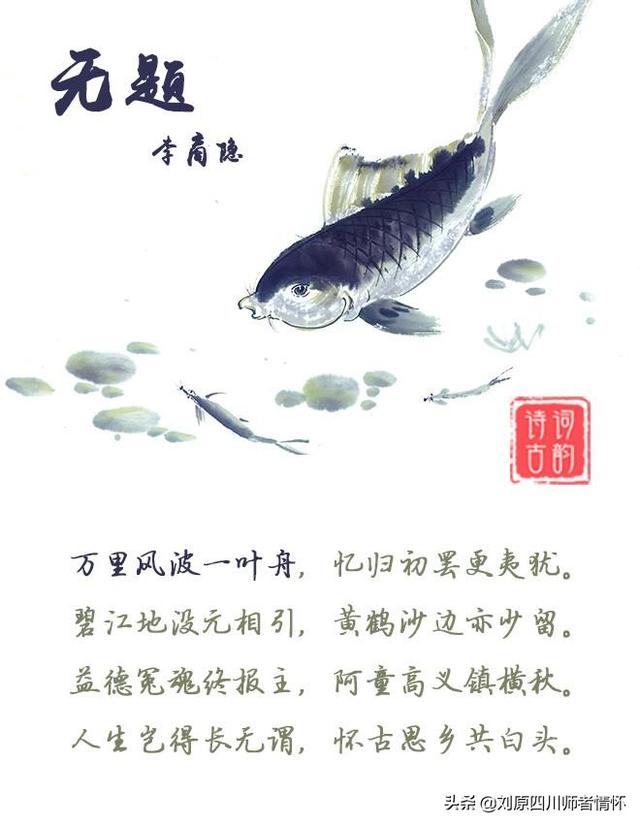 无题
李商隐
诗词
古韵
万里风波一叶舟，忆归初罢更夷犹。
碧江地没元相引，黄鹤沙边亦少留。
益德冤魂终报主，阿童高义镇横秋。
人生岂得长无谓，怀古思乡共白头。
头条 @刘原四川师者情怀